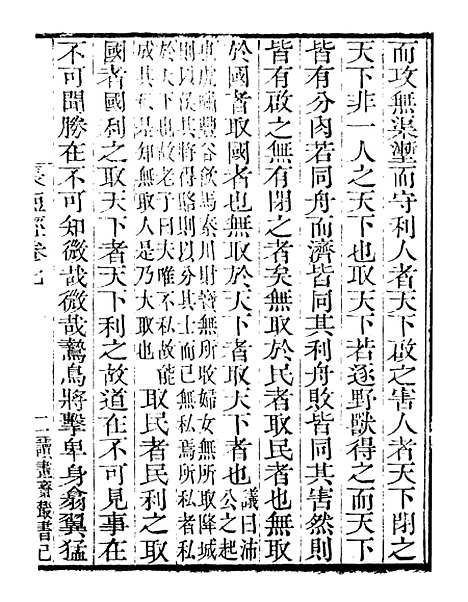 而攻無渠壍而守利人者天下啟之害人者天下閉之
天下非一人之天下也取天下若逐野獸得之而天下
皆有分肉若同舟而濟皆同其利舟敗皆同其害然則
皆有啟之無有閉之者矣無取於民者取民者也無取
於國者取國者也無取於天下者取天下者也
議曰沛
公之起
虎嘯豐谷飲馬秦川財寶無所收婦女無所取降城
則以侯其將得賂則以分其士而已無私焉所私者私
於天下也故老子曰夫唯不私故能
成其私是知無取人是乃大取也
取民者民利之取
國者國利之取天下者天下利之故道在不可見事在
不可聞勝在不可知微哉微哉鷙鳥將擊卑身翕翼猛
長短經卷七
二
讀畫齋叢書己